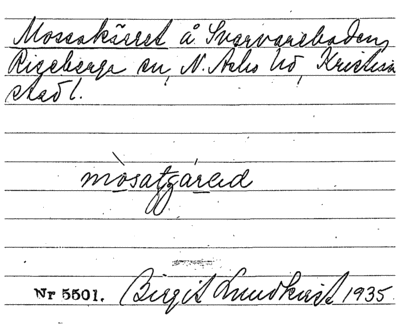 Mossakäret å Svarvareboden,
Riseberga sn, N. Åsbo hd, Kristian
stad l.
mòsatʃàred
Nr 5501. Birgit Lundkvist 1935.